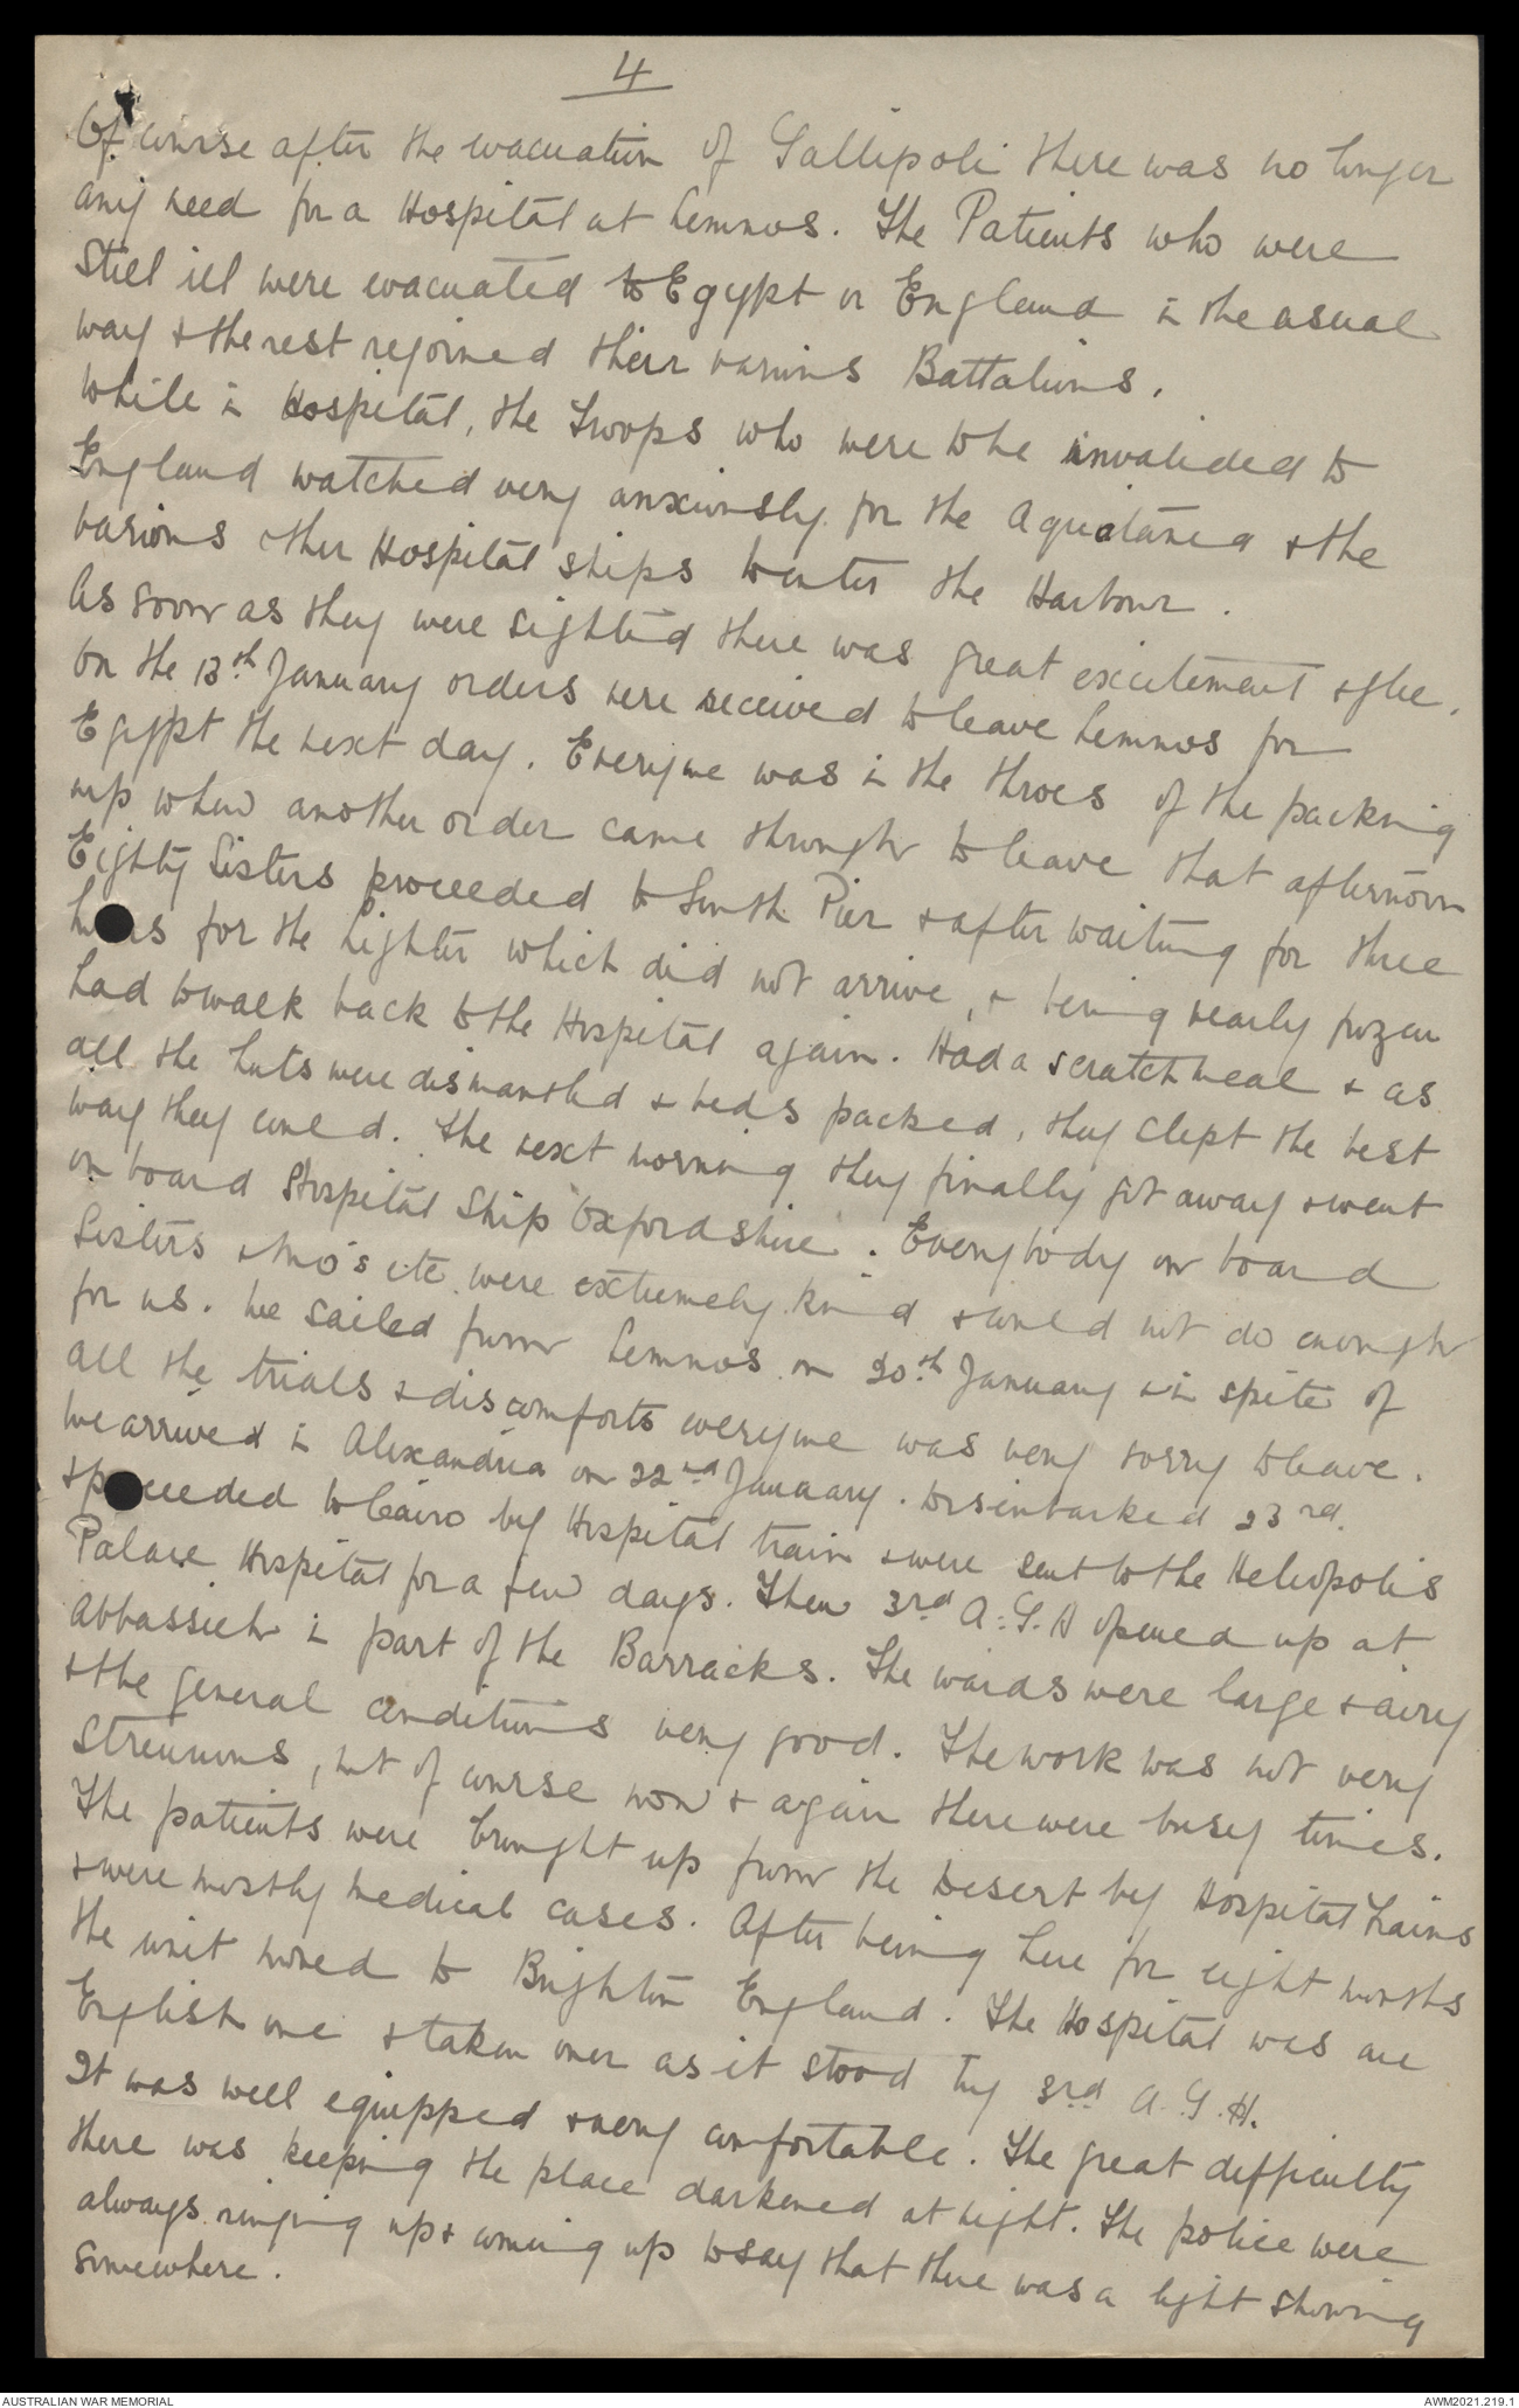 4
Of course after the evacuation of Gallipoli there was no longer
any need for a Hospital at Lemnos. The Patients who were
still ill were evacuated to Egypt or England in the usual
way & the rest rejoined their various Battalions.
While in Hospital, the Troops who were to be invalided to
England watched very anxiously for the Aquitania & the
various other Hospital ships to enter the Harbour.
As soon as they were sighted there was great excitement & glee.
On the 13th January orders were received to leave Lemnos for
Egypt the next day. Everyone was in the throes of the packing
up when another order came through to leave that afternoon
Eighty Sisters proceeded to South Pier & after waiting for three
hours for the Lighter which did not arrive, & being nearly frozen
had to walk back to the Hospital again. Had a scratch meal & as
all the huts were dismantled & beds packed, they slept the best
way they could. The next morning they finally got away & went
on board Hospital Ship "Oxfordshire". Everybody on board
Sisters & M.O's etc. were extremely kind & could not do enough
for us. We sailed from Lemnos on 20th January & in spite of
all the trials & discomforts everyone was very sorry to leave.
We arrived in Alexandria on 22nd January. Disembarked 23rd.
& proceeded to Cairo by Hospital train & were sent to the Heliopolis
Palace Hospital for a few days. Then 3rd A.G.H opened up at
Abbassieh in part of the Barracks. The wards were large & airy
& the general conditions very good. The work was not very
strenuous, but of course now & again there were busy times.
The patients were brought up from the Desert by Hospital trains
& were mostly medical cases. After being here for eight months
the unit moved to Brighton England. The Hospital was an
English one & taken over as it stood by 3rd A.G.H.
It was well equipped & very comfortable. The great difficulty
there was keeping the place darkened at night. The police were
always ringing up & coming up to say that there was a light showing
somewhere.
AUSTRALIAN WAR MEMORIAL
AWM2021.219.1